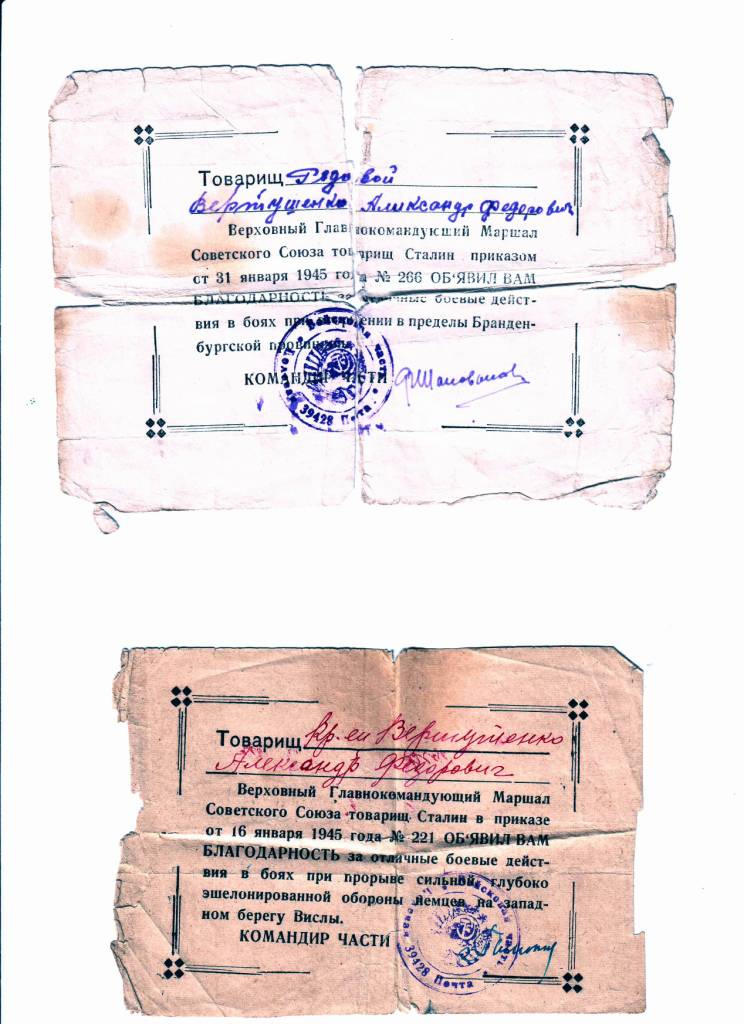 Товарищ Рядовой
Вертушенко Александр Федорович
Верховный Главнокомандующий Маршал
Советского Союза товарищ Сталин приказом
от 31 января 1945 года № 266 ОБ‘ЯВИЛ ВАМ
БЛАГОДАРНОСТЬ за отличные боевые дейст-
вия в боях при ении в пределы Бранден-
бургской провинции.
КОМАНДИР ЧАСТИ
Войсковая часть
39428 Почта
Товарищ Кр-ец Вертушенко
Александр Федорович
Верховный Главнокомандующий Маршал
Советского Союза товарищ Сталин в приказе
от 16 января 1945 года № 221 ОБ‘ЯВИЛ ВАМ
БЛАГОДАРНОСТЬ за отличные боевые дейст-
вия в боях при прорыве сильной глубоко
эшелонированной обороны немцев на запад-
ном берегу Вислы.
КОМАНДИР ЧАСТИ
Войсковая часть
39428 Почта